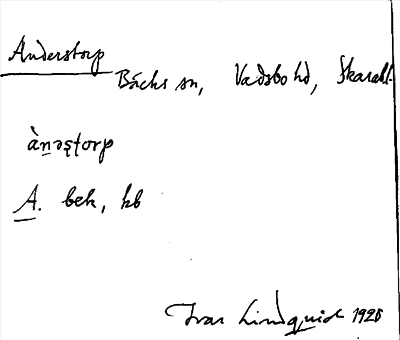 Anderstorp
Bäcks sn, Vadsbo hd, Skarabl.
ànəstorp
A. bek, kb
Ivar Lindquist 1925